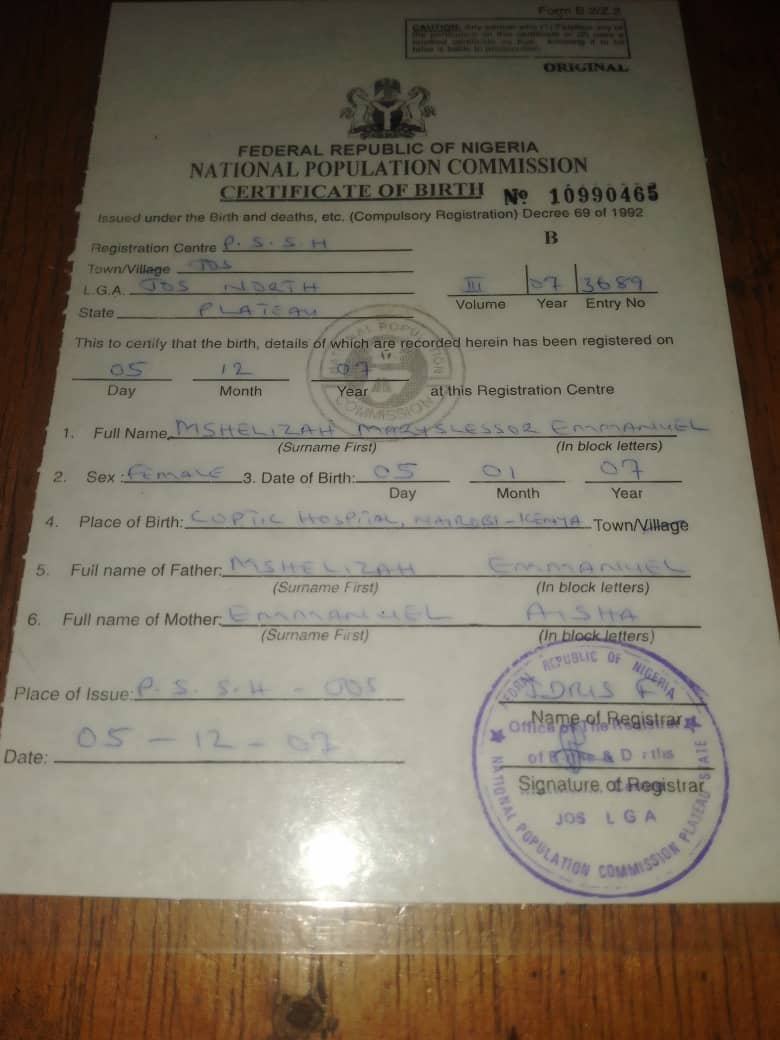 Form B 2/Z.2
CAUTION: Any person who (1) Falsifies any of
the particulars on this certificate or (2) uses a
falsified certificate as true, knowing it to be
false is liable to prosecution.
ORIGINAL
FEDERAL REPUBLIC OF NIGERIA
NATIONAL POPULATION COMMISSION
CERTIFICATE OF BIRTH No 10990465
Issued under the Birth and deaths, etc. (Compulsory Registration) Decree 69 of 1992
B
Registration Centre P.S.S.H
Town/Village JOS
L.G.A. JOS NORTH
State PLATEAU
III 07 3689
Volume Year Entry No
This to certify that the birth, details of which are recorded herein has been registered on
05 12 07
Day Month Year at this Registration Centre
NATIONAL POPULATION COMMISSION
1. Full Name MSHELIZAH MARYSLESSOR EMMANUEL
(Surname First) (In block letters)
2. Sex: FEMALE 3. Date of Birth: 05 01 07
Day Month Year
4. Place of Birth: COPTIC HOSPITAL, NAIROBI-KENYA Town/Village
5. Full name of Father: MSHELIZAH EMMANUEL
(Surname First) (In block letters)
6. Full name of Mother: EMMANUEL AISHA
(Surname First) (In block letters)
Place of Issue: P.S.S.H - JOS
IDRIS F
Name of Registrar
Date: 05-12-07
Signature of Registrar
FEDERAL REPUBLIC OF NIGERIA
Office of The Registrar
of & D
JOS LGA
NATIONAL POPULATION COMMISSION PLATEAU STATE